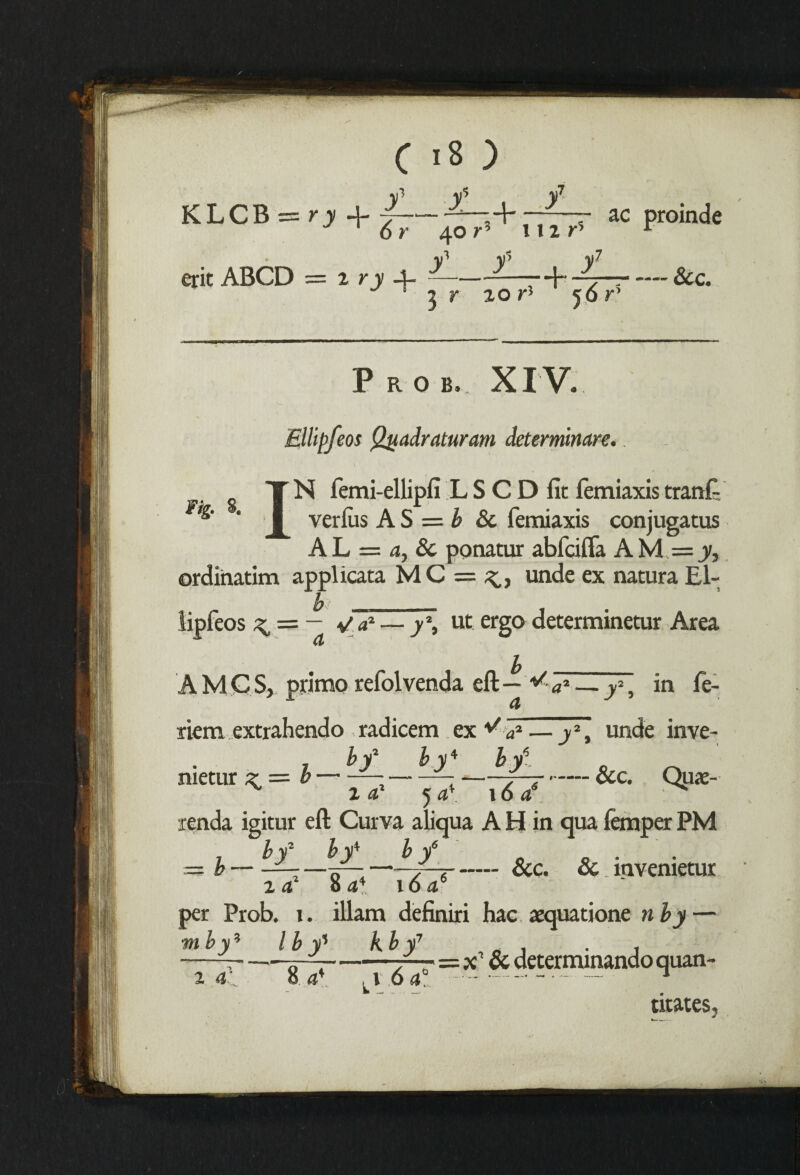 ( 18 )
KLCB = ry + y³/6r — y⁵/40r³ + y⁷/112r⁵ ac proinde
erit ABCD = 2ry + y³/3r — y⁵/20r³ + y⁷/56r⁵ — &c.
PROB. XIV.
Ellipſeos Quadraturam determinare.
Fig. 8.
IN ſemi-ellipſi LSCD ſit ſemiaxis tranſ-
verſus AS = b & ſemiaxis conjugatus
AL = a, & ponatur abſciſſa AM = y,
ordinatim applicata MC = z, unde ex natura El-
lipſeos z = b/a √a² — y², ut ergo determinetur Area
AMCS, primo reſolvenda eſt b/a √a² — y², in ſe-
riem extrahendo radicem ex √a² — y², unde inve-
nietur z = b — by²/2a² — by⁴/5a⁴ — by⁶/16a⁶ — &c. Quæ-
renda igitur eſt Curva aliqua AH in qua ſemper PM
= b — by²/2a² — by⁴/8a⁴ — by⁶/16a⁶ — &c. & invenietur
per Prob. 1. illam definiri hac æquatione nby —
mby³/2a² — lby⁵/8a⁴ — kby⁷/16a⁶ = x¹ & determinando quan-
titates,